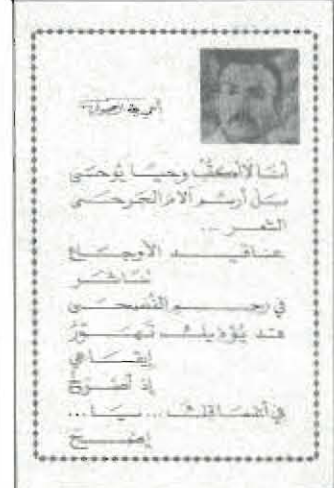 أنا لا أكتب وحيا يوحى
بل أرسم آلام الجرحى
الشعر ...
عناقيد الأوجاع
تناثر
في رحم الفصحى
قد يؤذيك تهور
إيقاعي
إذ أطرح
في أعماقك ... يا ...